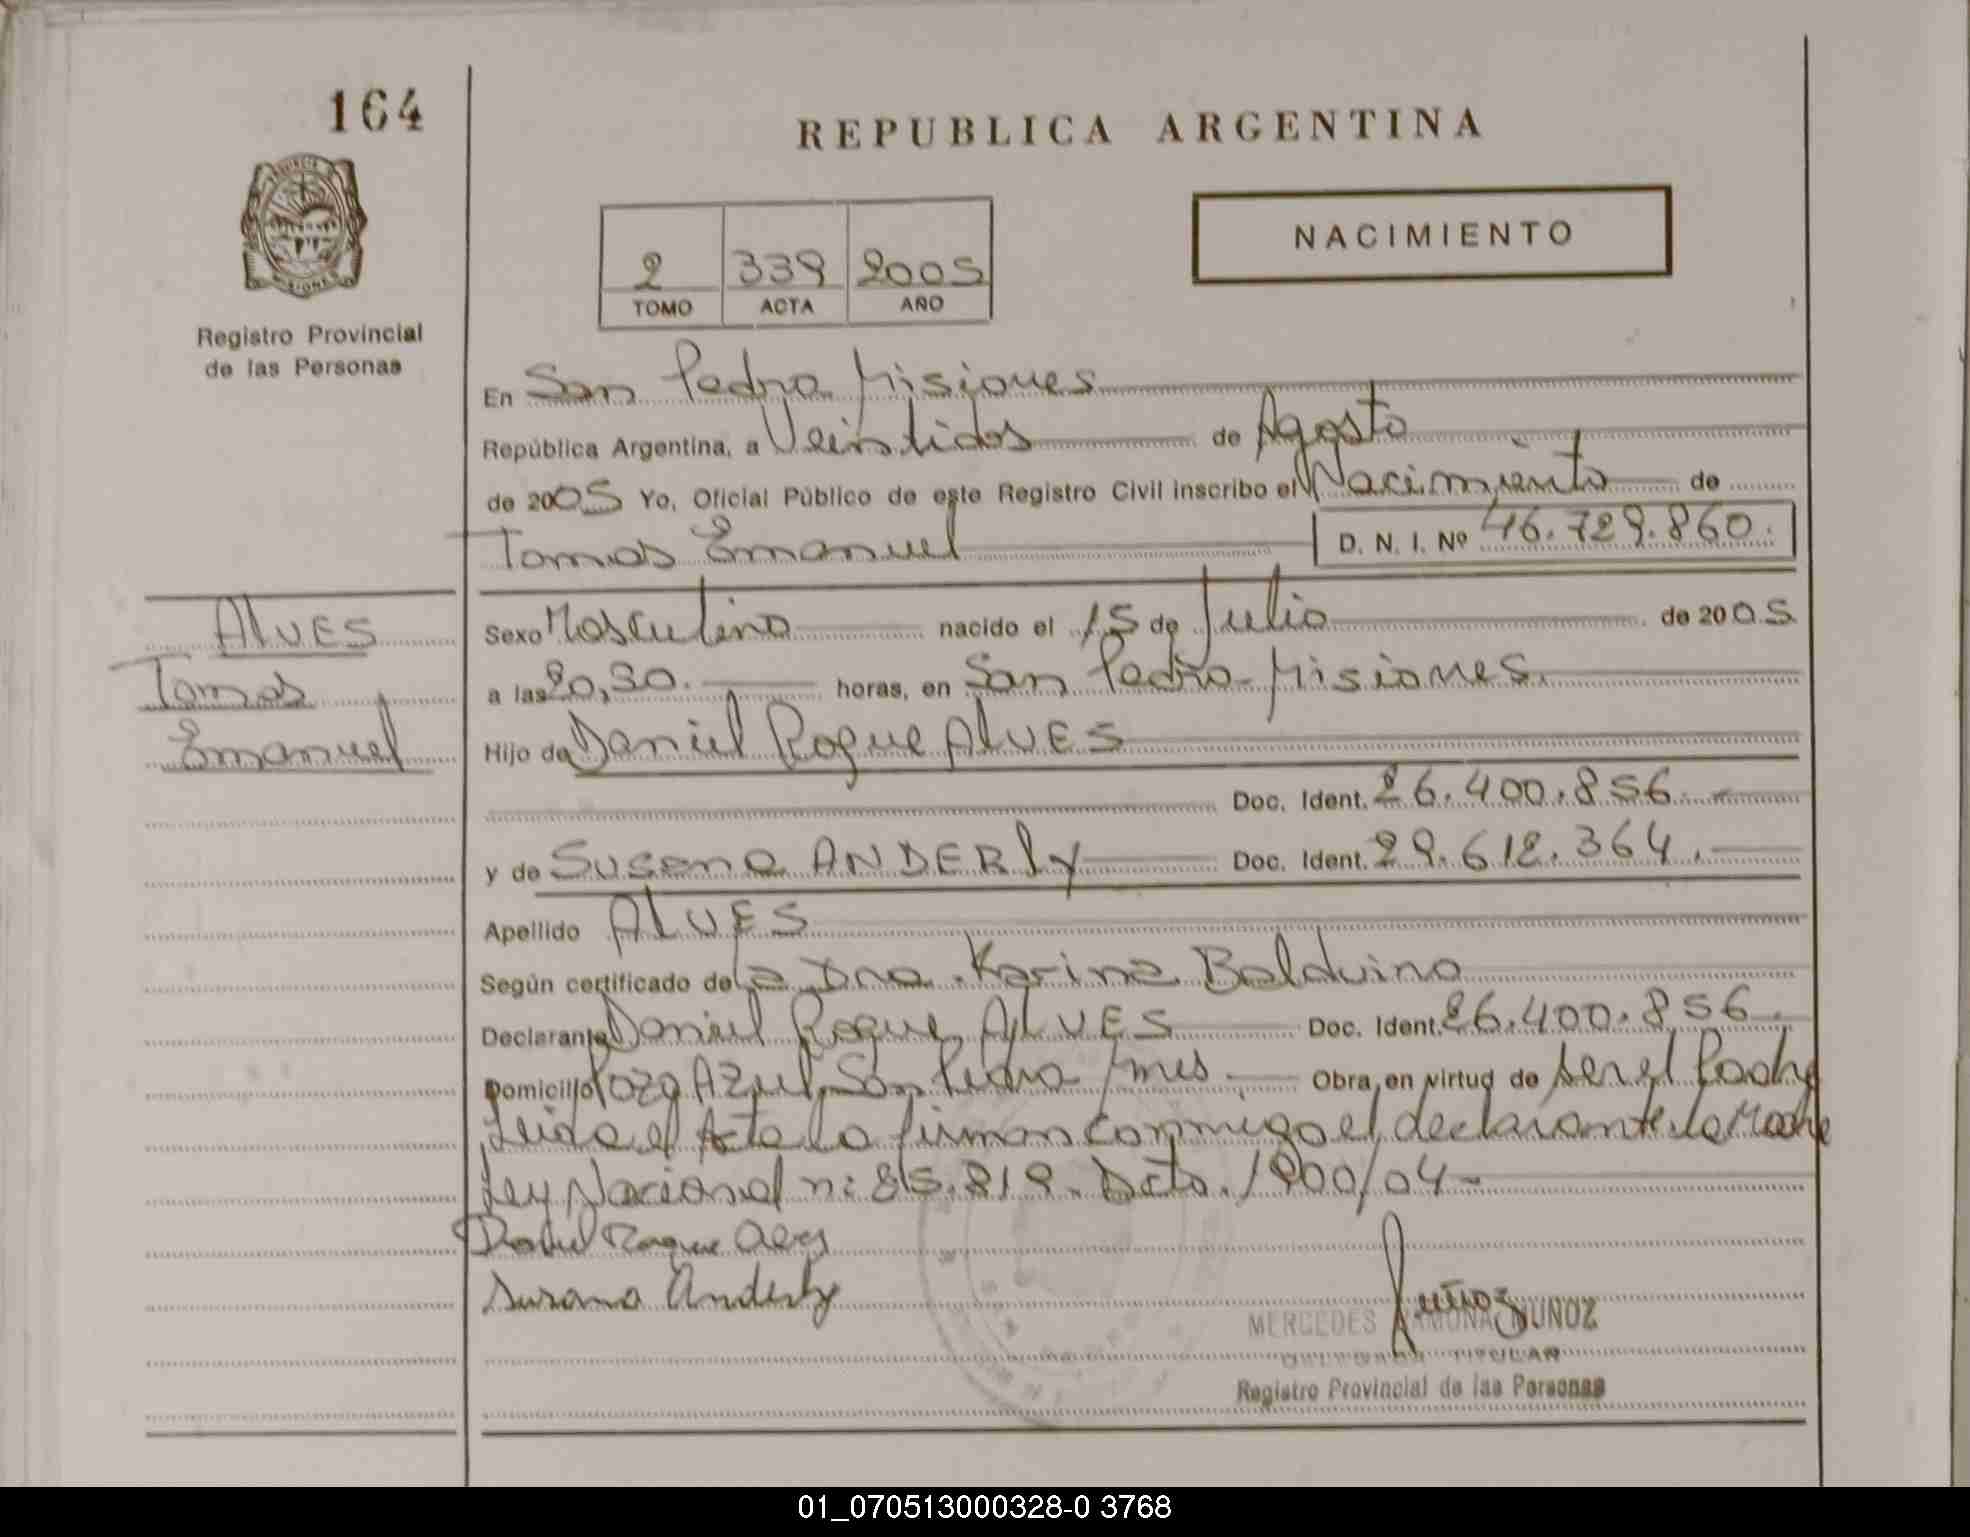 164
REPUBLICA ARGENTINA
NACIMIENTO
2 339 2005
TOMO ACTA AÑO
Registro Provincial
de las Personas
En San Pedro Misiones
República Argentina, a Veintidos de Agosto
de 2005 Yo, Oficial Público de este Registro Civil inscribo el Nacimiento de
Tomas Emanuel D. N. I. Nº 46.729.860.
ALVES
Tomas
Emanuel
Sexo Masculino nacido el 15 de Julio de 2005
a las 20,30. horas, en San Pedro Misiones.
Hijo de Daniel Roque ALVES
Doc. Ident. 26.400.856.
y de Susana ANDERLY Doc. Ident. 29.612.364.
Apellido ALVES
Según certificado de la Dra. Karina Balduino
Declarante Daniel Roque ALVES Doc. Ident. 26.400.856.
Domicilio Pozo Azul, San Pedro Mnes Obra en virtud de ser el Padre
Leida el Acta la firman conmigo el declarante la Madre
Ley Nacional n: 25.819. Dcto. 1900/04-
Roque
Susana Anderly
Muñoz
MERCEDES RAMONA MUÑOZ
DELEGADA TITULAR
Registro Provincial de las Personas
01_070513000328-0 3768